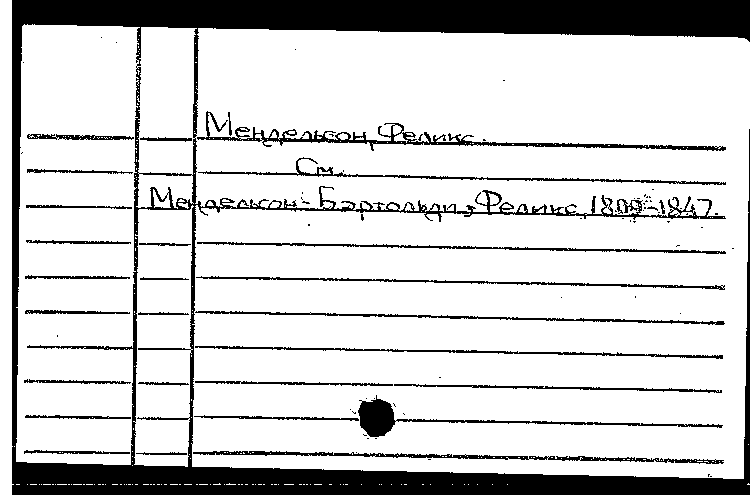 Мендельсон, Феликс.
См.
Мендельсон-Бартольди, Феликс, 1809-1847.